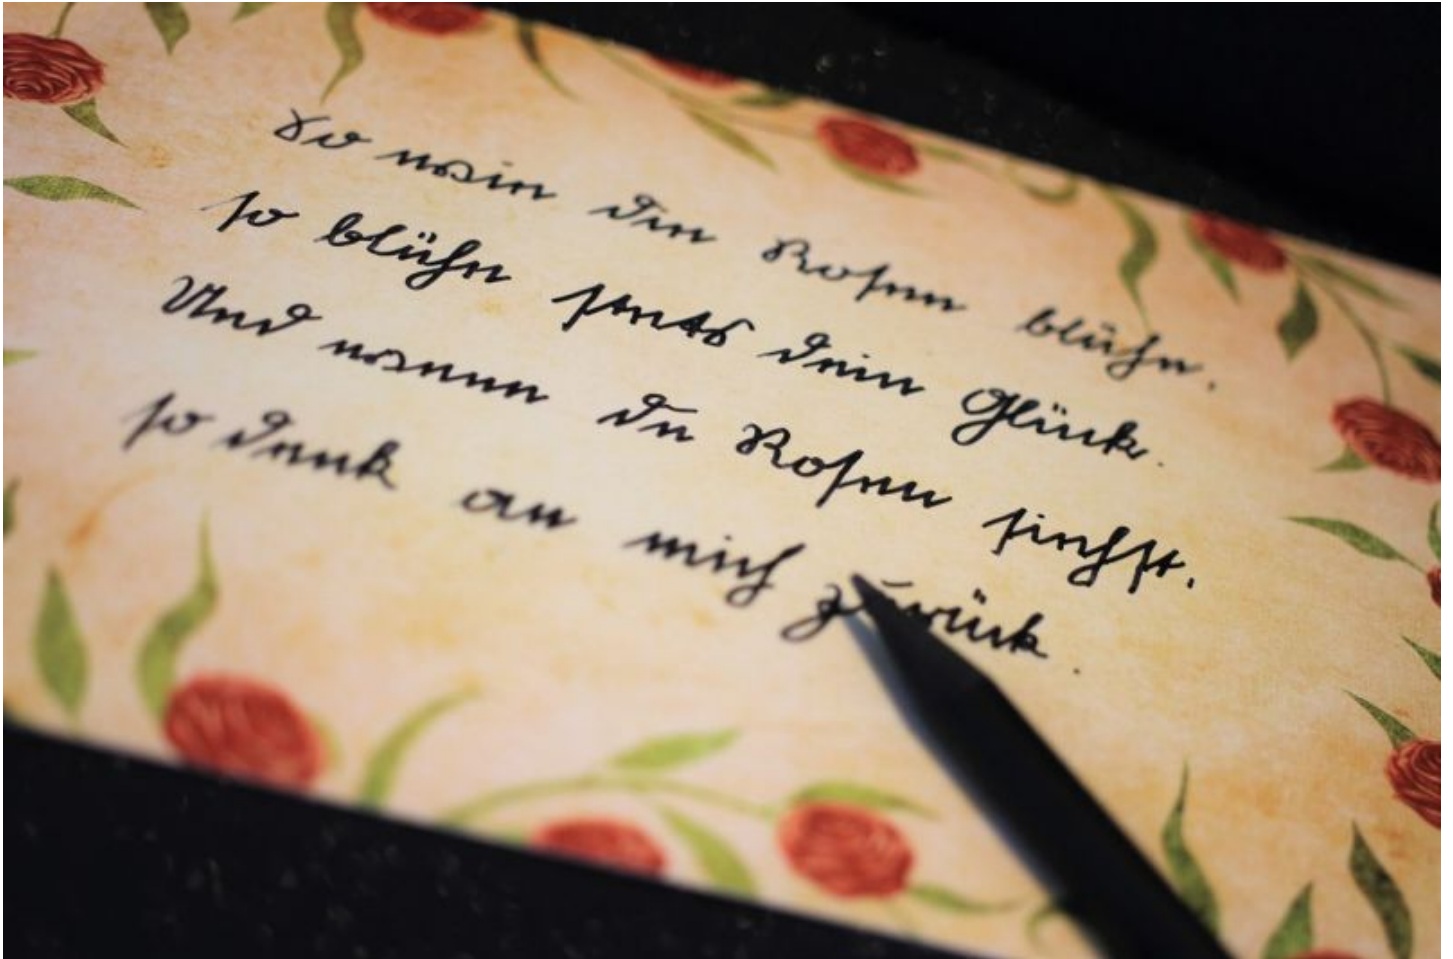 So wein die Rosen blühn.
so blühe stets dein Glück.
Und wenn du Rosen siehst,
so denk an mich zurück.